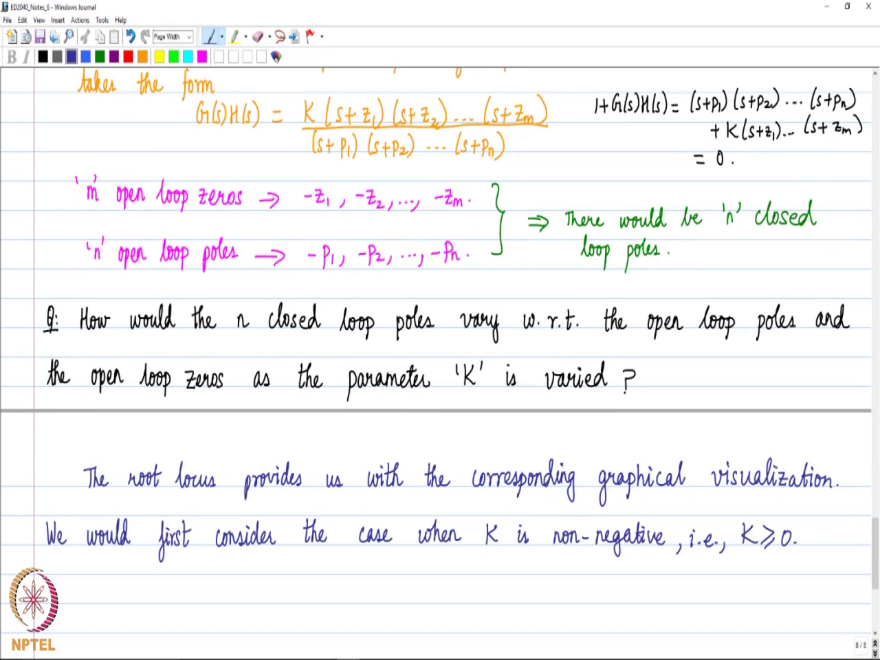 ED2040_Notes_6 - Windows Journal
File Edit View Insert Actions Tools Help
Page Width
B I
takes the form
G(s)H(s) = K(s+z₁)(s+z₂)...(s+zₘ)
(s+p₁)(s+p₂)...(s+pₙ)
1+G(s)H(s) = (s+p₁)(s+p₂)...(s+pₙ)
+ K(s+z₁)...(s+zₘ)
= 0.
'm' open loop zeros ⇒ -z₁, -z₂, ..., -zₘ.
'n' open loop poles → -p₁, -p₂, ..., -pₙ.
⇒ There would be 'n' closed
loop poles.
Q: How would the n closed loop poles vary w.r.t. the open loop poles and
the open loop zeros as the parameter 'K' is varied?
The root locus provides us with the corresponding graphical visualization.
We would first consider the case when K is non-negative, i.e., K≥0.
NPTEL
8/8